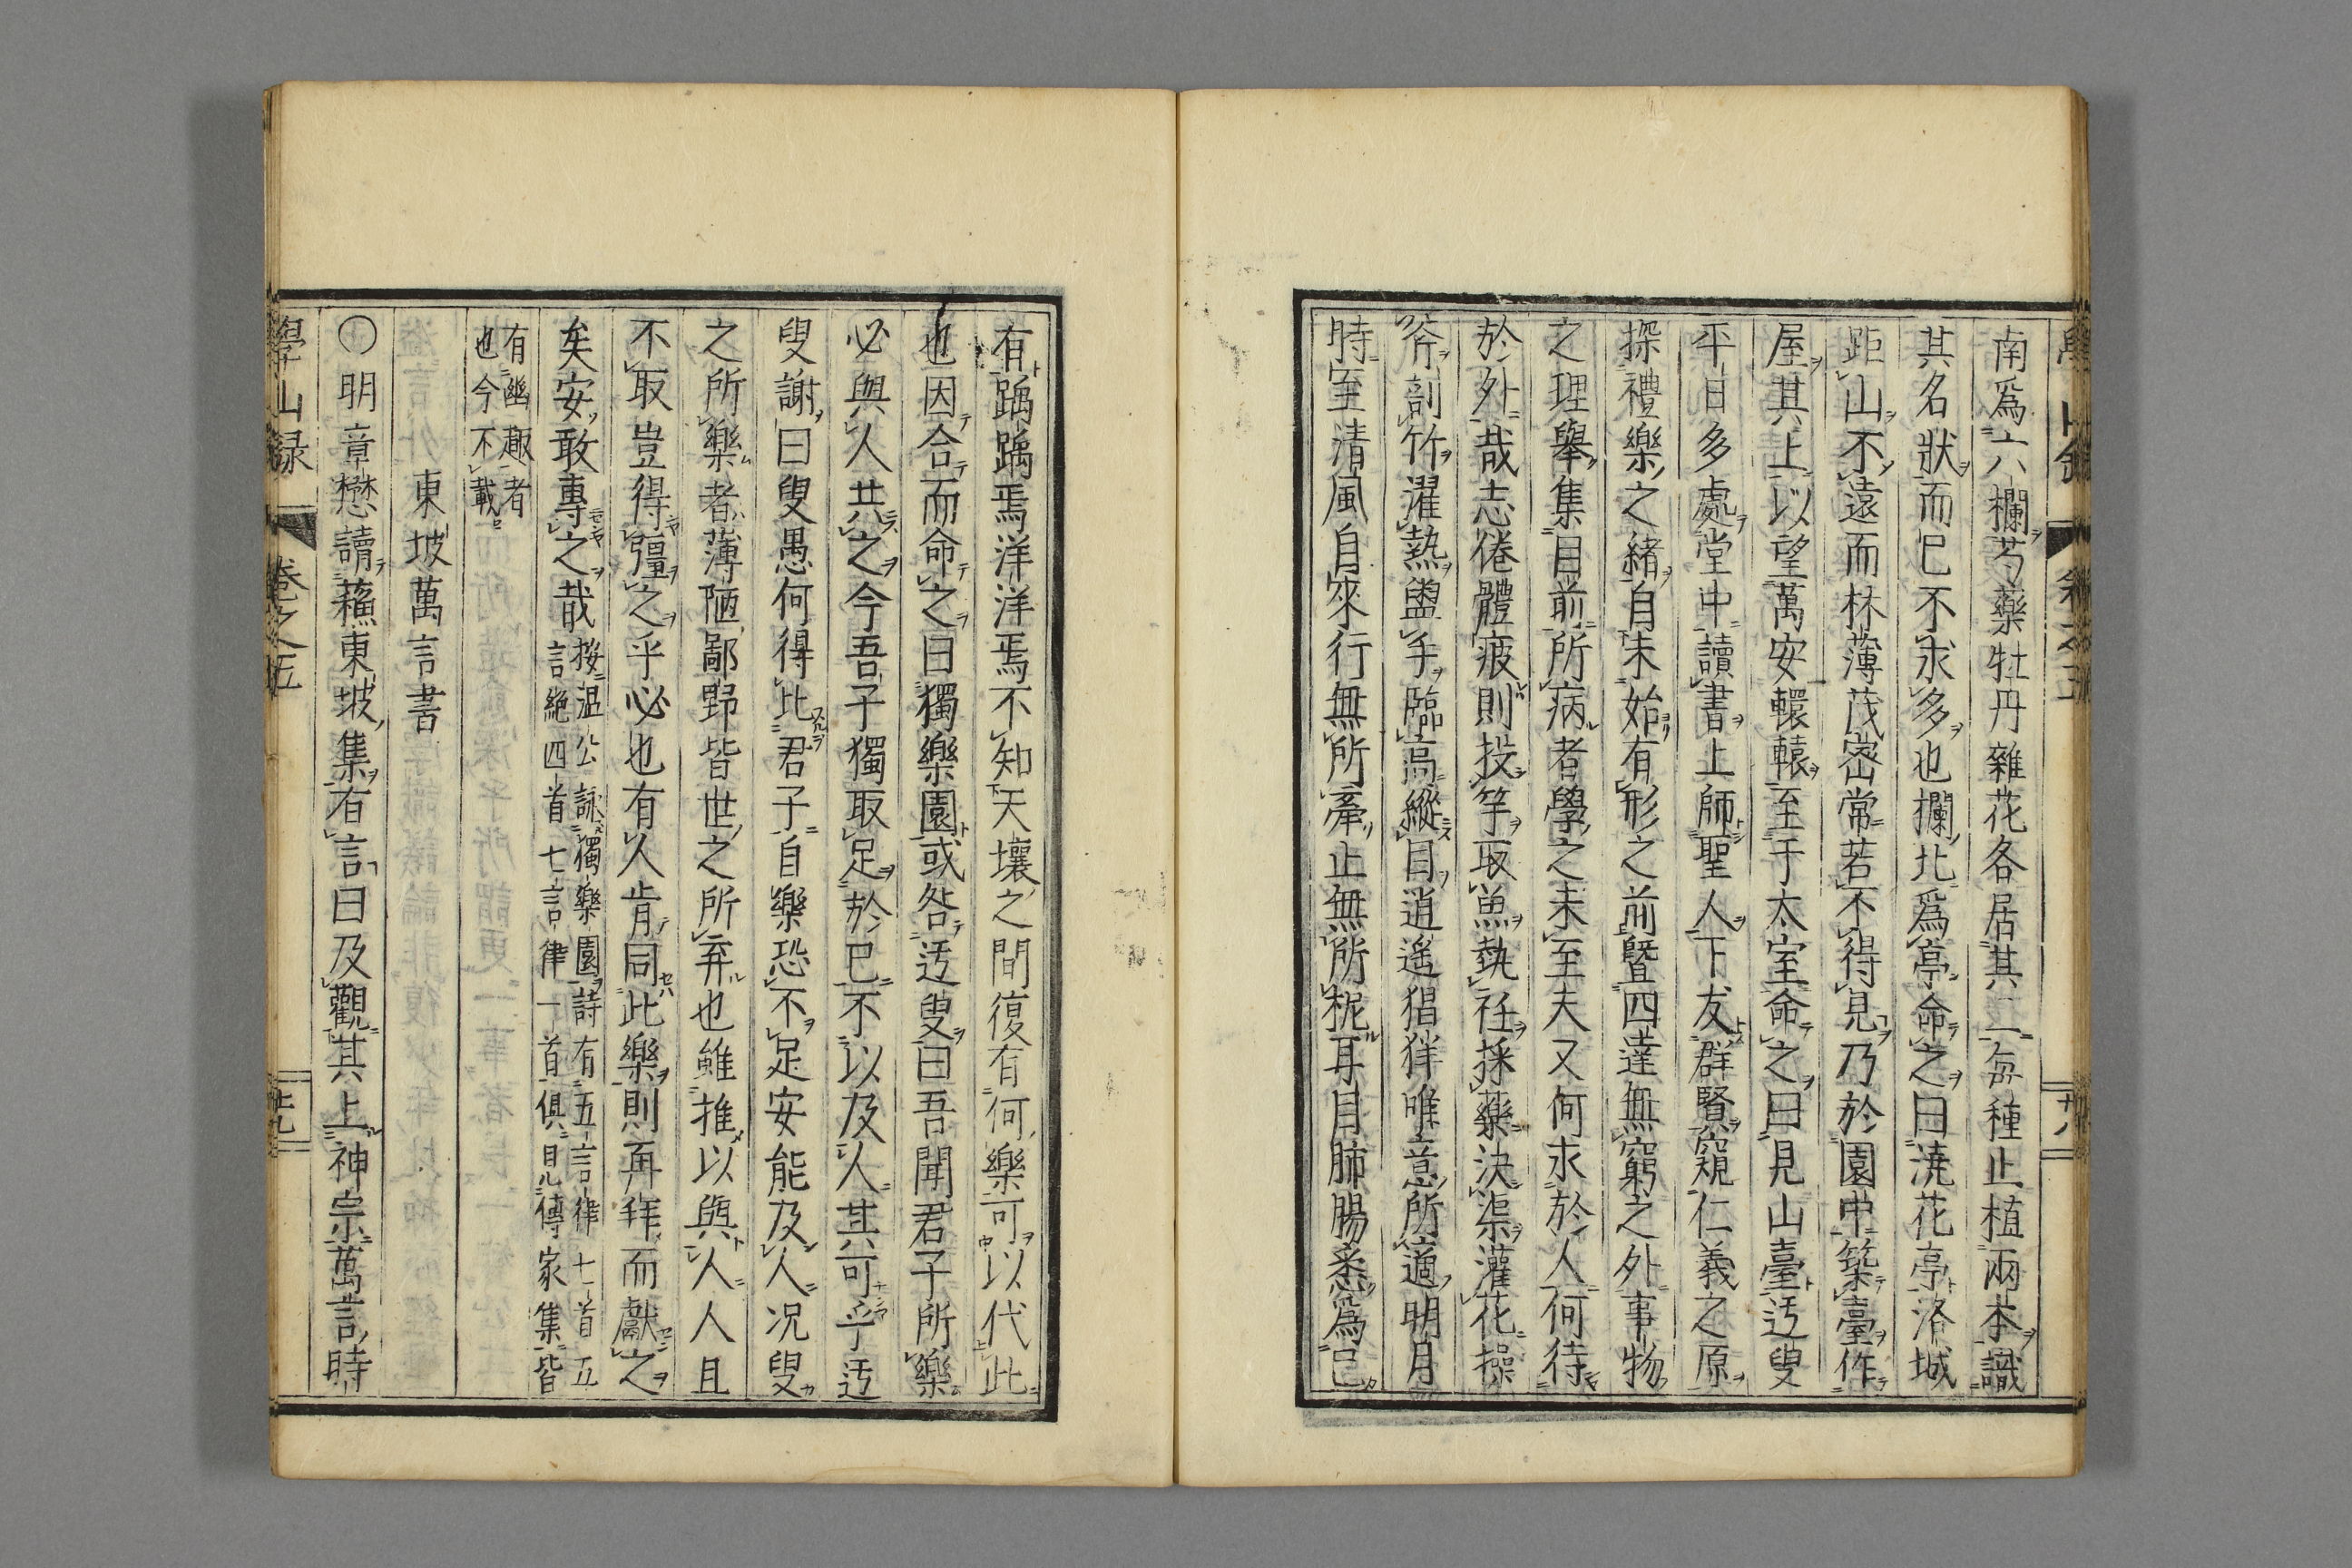 南爲六欄芍藥牡丹雜花各居其二每種止植兩本識
其名狀而已不求多也欄北爲亭命之曰澆花亭洛城
距山不遠而林薄茂密常若不得見乃於園中築臺作
屋其上以望萬安轘轅至于太室命之曰見山臺迂叟
平日多處堂中讀書上師聖人下友群賢窺仁義之原
探禮樂之緒自未始有形之前曁四達無窮之外事物
之理舉集目前所病者學之未至夫又何求於人何待
於外哉志倦體疲則投竿取魚執衽採藥決渠灌花操
斧剖竹濯熱盥手臨高縱目逍遙猖徉唯意所適明月
時至清風自來行無所牽止無所柅耳目肺腸悉爲己
有踽踽焉洋洋焉不知天壤之間復有何樂可以代此
也因合而命之曰獨樂園或咎迂叟曰吾聞君子所樂
必與人共之今吾子獨取足於已不以及人其可乎迂
叟謝曰叟愚何得比君子自樂恐不足安能及人况叟
之所樂者薄陋鄙野皆世之所弃也雖推以與人人且
不取豈得彊之乎必也有人肯同此樂則再拜而獻之
矣安敢專之哉按温公詠獨樂園詩有五言律七首五
言絶四首七言律一首俱見傳家集皆
有幽趣者
也今不載
東坡萬言書
〇明章懋讀蘓東坡集有言曰及觀其上神宗萬言時
學山録 卷之五